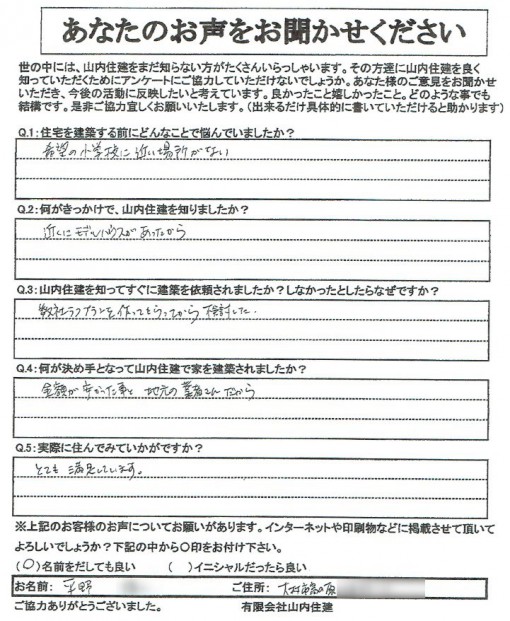 あなたのお声をお聞かせください
世の中には、山内住建をまだ知らない方がたくさんいらっしゃいます。その方達に山内住建を良く
知っていただくためにアンケートにご協力していただけないでしょうか。あなた様のご意見をお聞かせ
いただき、今後の活動に反映したいと考えています。良かったこと嬉しかったこと。どのような事でも
結構です。是非ご協力宜しくお願いいたします。（出来るだけ具体的に書いていただけると助かります）
Q.1：住宅を建築する前にどんなことで悩んでいましたか？
希望の小学校に近い場所がない
Q.2：何がきっかけで、山内住建を知りましたか？
近くにモデルハウスがあったから
Q.3：山内住建を知ってすぐに建築を依頼されましたか？しなかったとしたらなぜですか？
数社ラフプランを作ってもらってから検討した.
Q.4：何が決め手となって山内住建で家を建築されましたか？
金額が安かった事と地元の業者さんだから
Q.5：実際に住んでみていかがですか？
とても満足しています。
※上記のお客様のお声についてお願いがあります。インターネットや印刷物などに掲載させて頂いて
よろしいでしょうか？下記の中から○印をお付け下さい。
（○）名前をだしても良い　（　）イニシャルだったら良い
お名前：平野　ご住所：大村市
ご協力ありがとうございました。　有限会社山内住建